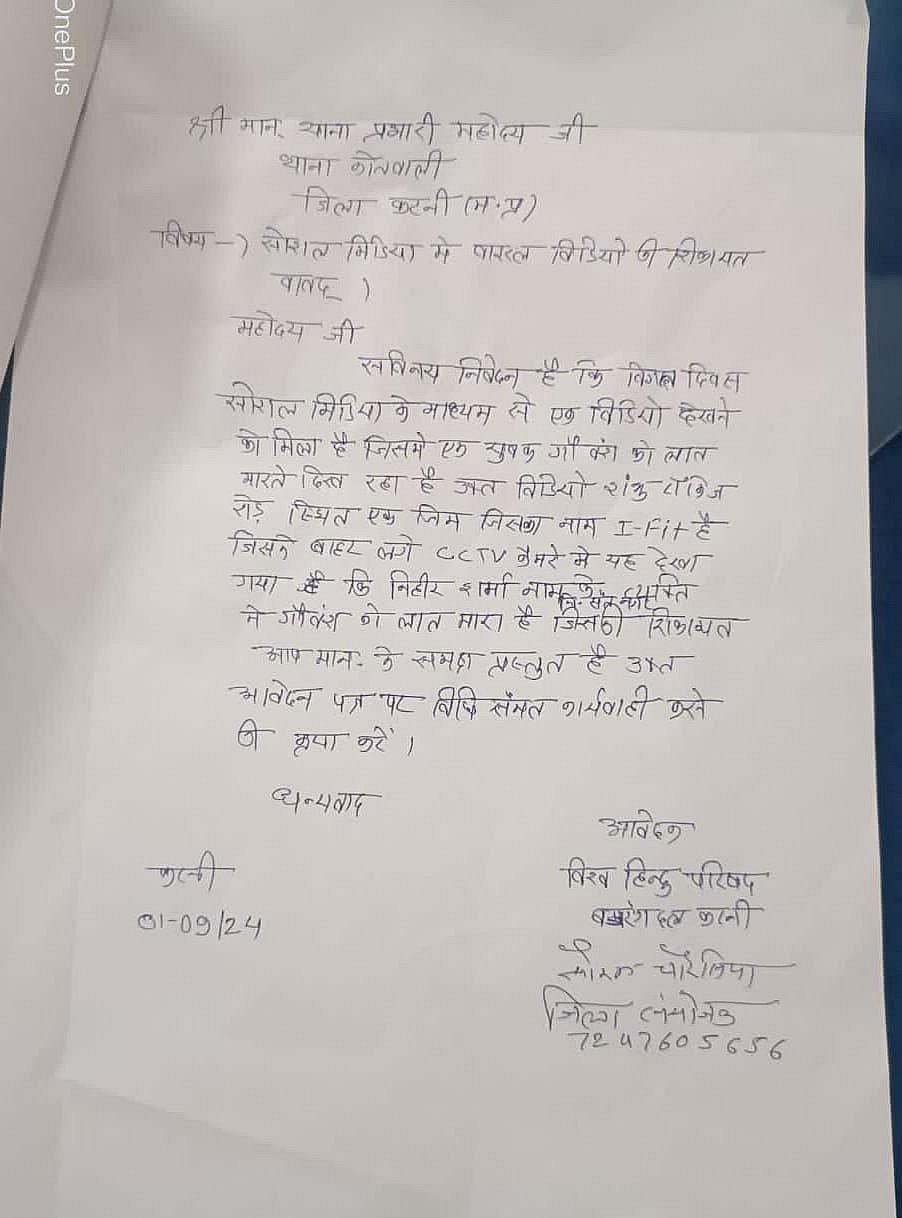 OnePlus
श्री मान. थाना प्रभारी महोदय जी
थाना कोतवाली
जिला कटनी (म.प्र)
विषय -) सोशल मिडिया मे वायरल विडियो की शिकायत
वावद् )
महोदय जी
सविनय निवेदन है कि विगत दिवस
सोशल मिडिया के माध्यम से एक विडियो देखने
को मिला है जिसमे एक युवक गौ वंश को लात
मारते दिख रहा है उक्त विडियो शंकु कॉलेज
रोड़ स्थित एक जिम जिसका नाम I-Fit है
जिसके बाहर लगे CCTV कैमरे मे यह देखा
गया है कि निहीर शर्मा नाम के व्यक्ति
ने गौवंश को लात मारा है जिसकी शिकायत
आप मान. के समक्ष प्रस्तुत है उक्त
आवेदन पत्र पर विधि संमत कार्यवाही करने
की कृपा करें ।
धन्यवाद
आवेदक
कटनी
विश्व हिन्दु परिषद
01-09/24
बजरंगदल कटनी
जिला संयोजक
7247605656